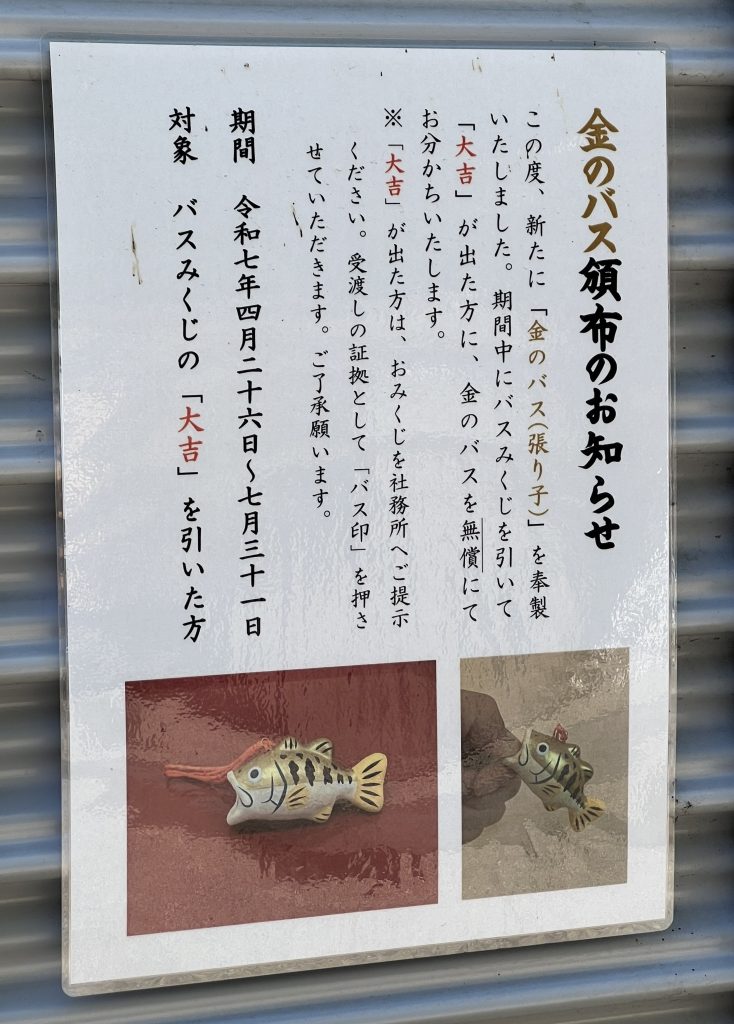 金のバス頒布のお知らせ
この度、新たに「金のバス(張り子)」を奉製
いたしました。期間中にバスみくじを引いて
「大吉」が出た方に、金のバスを無償にて
お分かちいたします。
※「大吉」が出た方は、おみくじを社務所へご提示
ください。受渡しの証拠として「バス印」を押さ
せていただきます。ご了承願います。
期間 令和七年四月二十六日～七月三十一日
対象 バスみくじの「大吉」を引いた方